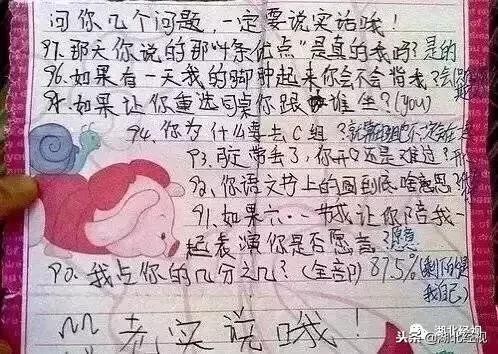 问你几个问题，一定要说实话哦！
97.那天你说的那"4条优点"是真的我吗？是的
96.如果有一天我的脚肿起来你会不会背我？会
95.如果让你重选同桌你跟谁坐？(you)
94.你为什么要去C组？
93.我走了，你开心还是难过？
92.你语文书上的画到底啥意思？
91.如果六·一节我让你陪我一
起表演你是否愿意？愿意
90.我占你的几分之几？(全部) 87.5%(剩下的是
我自己)
老实说哦！
头条 @湖北经视
湖北经视